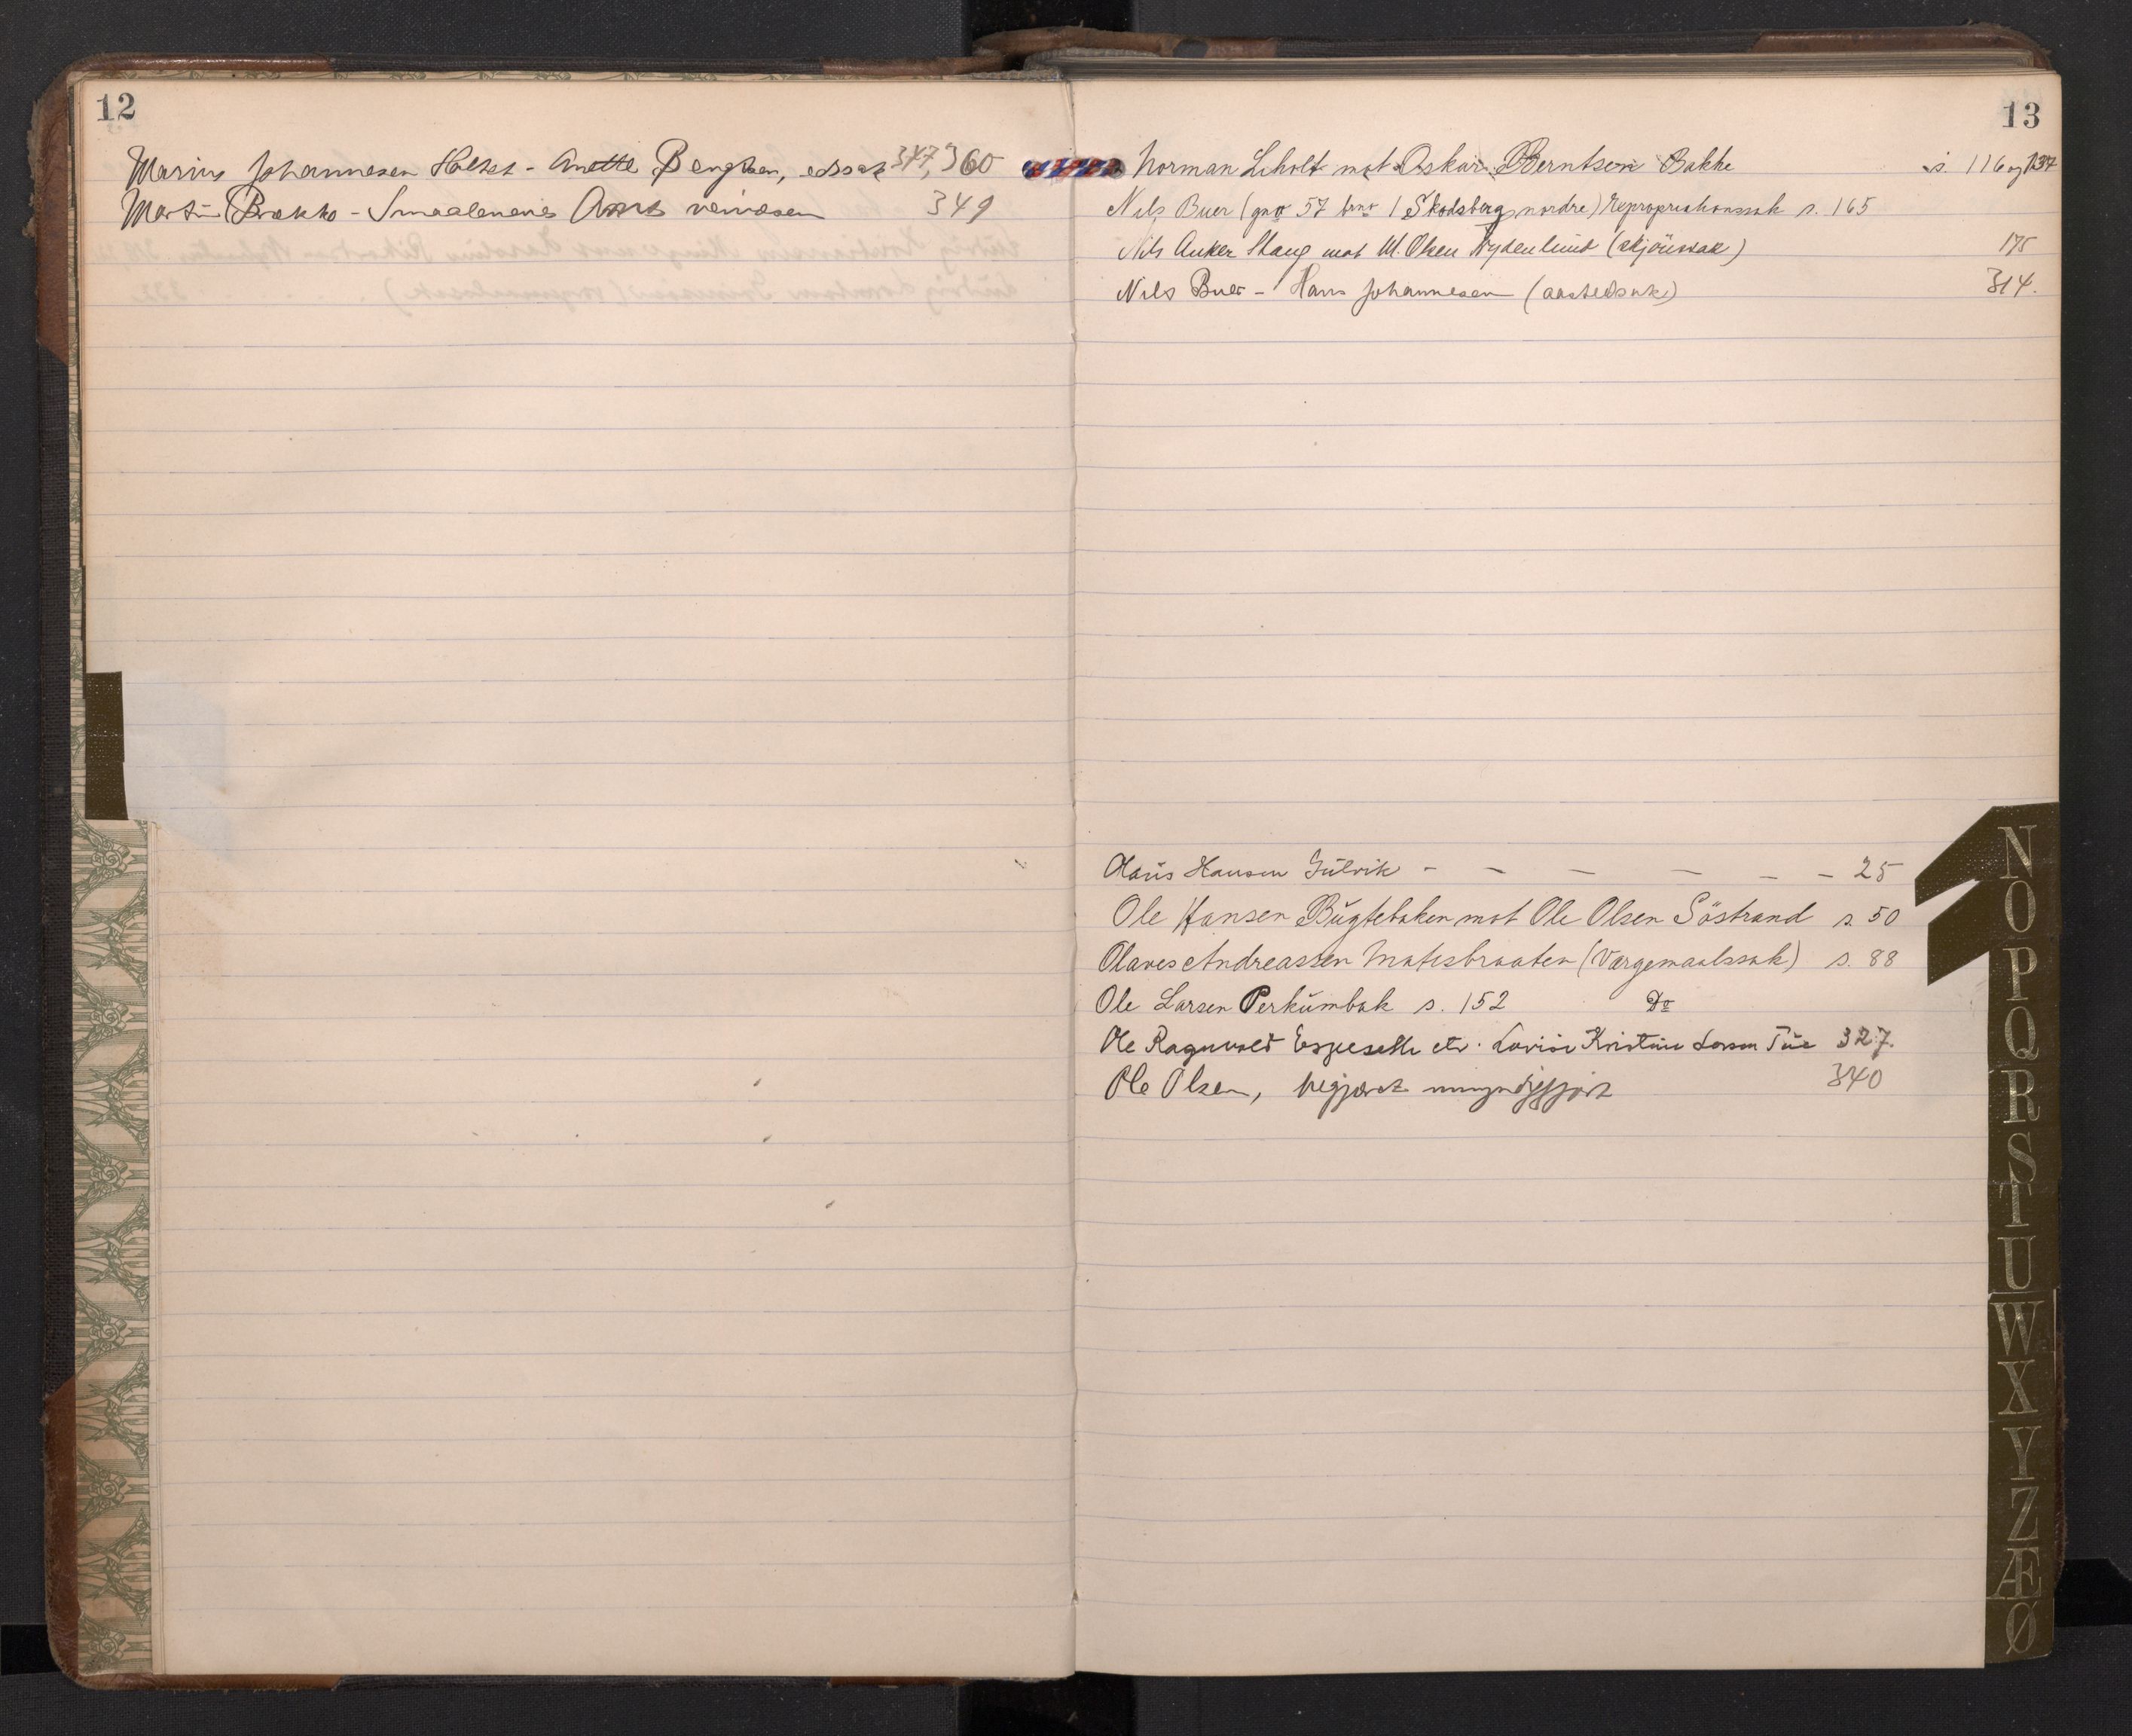 12
Marius Johannesen Holtet - Anette Bengtsen, edssak 347, 360
Martin Brækko - Smaalenenes Amts veivæsen 349
13
Norman Liholt mot Oskar Berntsen Bakke s. 116 og 137
Nils Buer (gno 57 bno 1 Skodsberg nordre) Expropriationssak s. 165
Nils Anker Stang mot M. Olsen Nydenlund (skjönssak) 175
Nils Buer - Hans Johannesen (aastedssak) 314.
Hansen Gulvik - - - - - - 25
Ole Hansen Bugtebaken mot Ole Olsen Söstrand s. 50
Olaves Andreassen Matisbraaten (Værgemaalssak) s. 88
Ole Larsen Perkumbak s. 152 Do
Ole Ragnvald Espeseth etv. Lovise Kristine Larsen 327.
Ole Olsen, begjæret umyndiggjort 340
N
O
P
Q
R
S
T
U
W
X
Y
Z
Æ
Ø